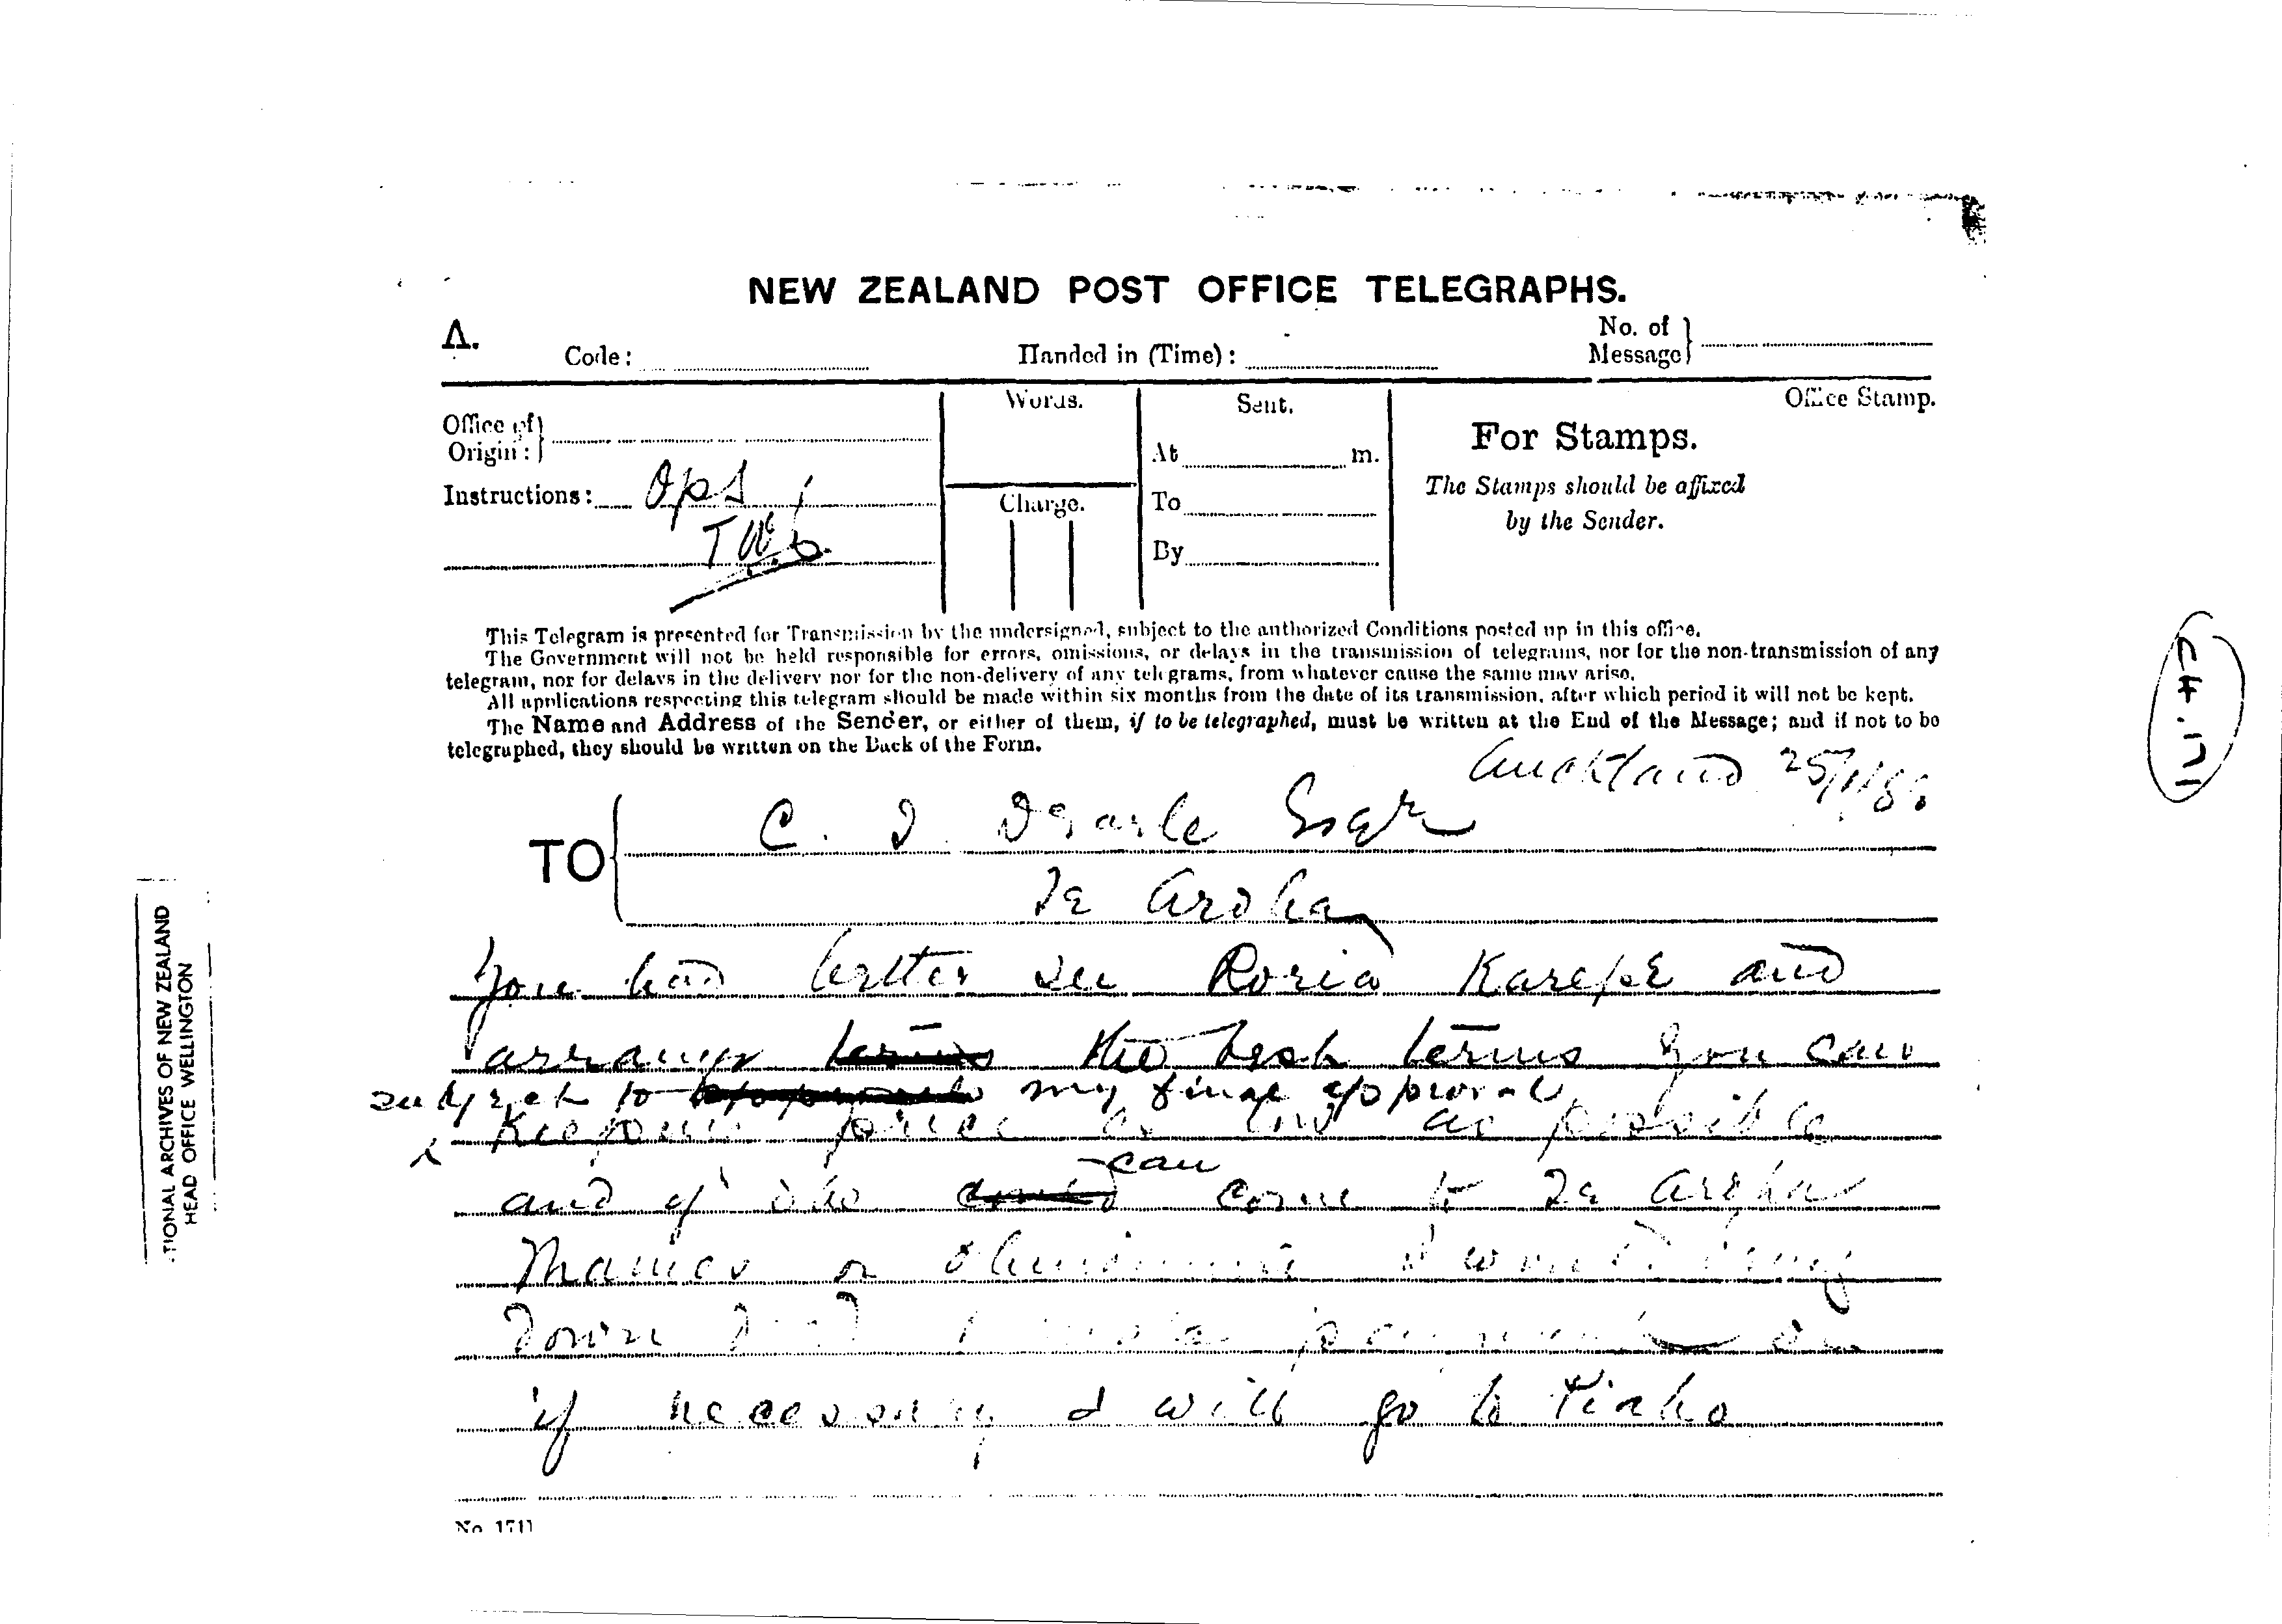 NEW ZEALAND POST OFFICE TELEGRAPHS.
A.
Code:
Handed in (Time):
No. of Message
Office of Origin:
Words.
Sent.
Office Stamp.
For Stamps.
At m.
Instructions: Ops
Charge.
To
The Stamps should be affixed
by the Sender.
By
This Telegram is presented for Transmission by the undersigned, subject to the authorized Conditions posted up in this office.
The Government will not be held responsible for errors, omissions, or delays in the transmission of telegrams, nor for the non-transmission of any
telegram, nor for delays in the delivery nor for the non-delivery of any telegrams, from whatever cause the same may arise.
All applications respecting this telegram should be made within six months from the date of its transmission, after which period it will not be kept.
The Name and Address of the Sender, or either of them, if to be telegraphed, must be written at the End of the Message; and if not to be
telegraphed, they should be written on the Back of the Form.
Auckland
TO
C. J. Dearle Esqr
Te Aroha
You had better see Roria Karepe and
arrange terms the best terms you can
subject to my final approval
price as low as possible
and if she can come to Te Aroha
Thames or I would bring
down payment
if necessary I will go to
No. 1711
NATIONAL ARCHIVES OF NEW ZEALAND
HEAD OFFICE WELLINGTON